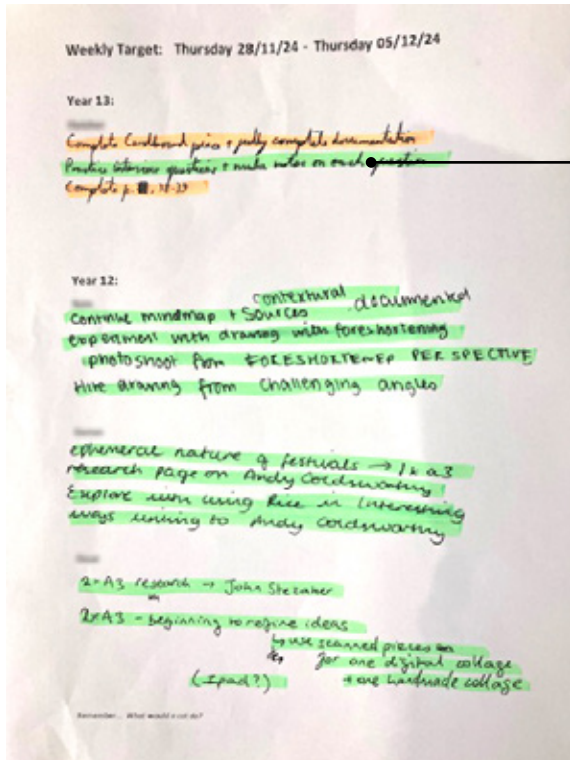 Weekly Target: Thursday 28/11/24 - Thursday 05/12/24
Year 13:
Complete Cardboard piece + fully complete documentation
Practice interview questions + make notes on each question
Complete p. , 38-39
Year 12:
contextural
Continue mindmap + Sources documented
experiment with drawing with foreshortening
photoshoot from FORESHORTENED PERSPECTIVE
drawing from challenging angles
ephemeral nature of festivals → 1x a3
research page on Andy Goldsworthy
Explore with using Rice in Interesting
ways linking to Andy Goldsworthy
2xA3 research → John Stezaker
2xA3 - beginning to refine ideas
↳ use scanned pieces
for one digital collage
+ one handmade collage
(Ipad?)
Remember... What would a cat do?